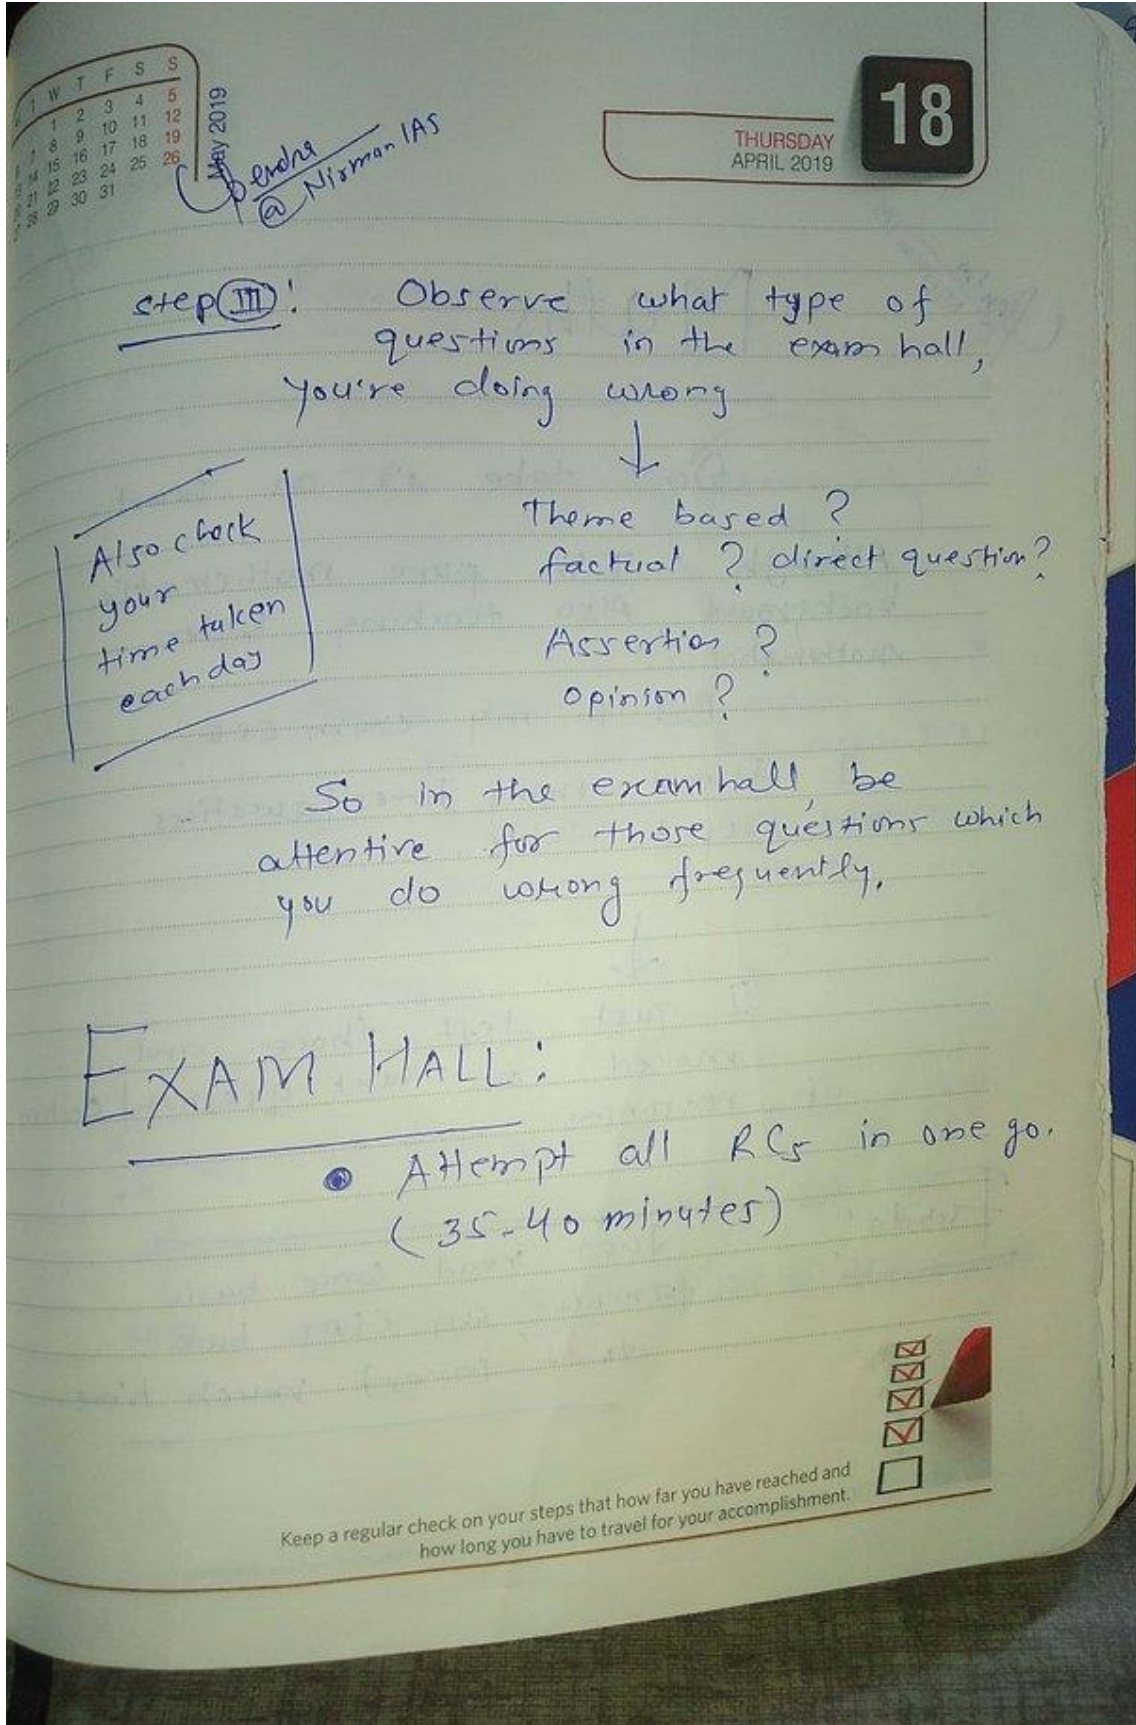 T W T F S S
1 2 3 4 5
7 8 9 10 11 12
14 15 16 17 18 19
21 22 23 24 25 26
28 29 30 31
May 2019
Upendra
@ Nirman IAS
THURSDAY
APRIL 2019
18
step III : Observe what type of
questions in the exam hall,
you're doing wrong
↓
Theme based ?
factual ? direct question ?
Assertion ?
opinion ?
Also check
your
time taken
each day
So in the exam hall, be
attentive for those questions which
you do wrong frequently.
EXAM HALL:
• Attempt all RCs in one go.
(35-40 minutes)
Keep a regular check on your steps that how far you have reached and
how long you have to travel for your accomplishment.